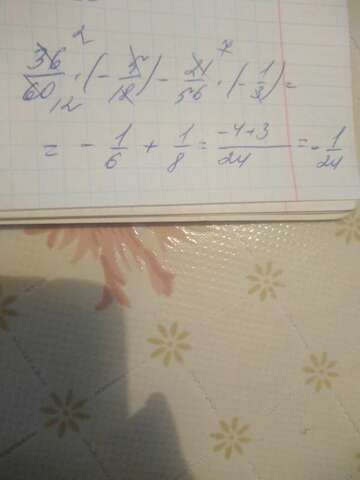 36/60 · (- 5/18) - 21/56 · (- 1/3) =
= - 1/6 + 1/8 = -4+3/24 = - 1/24